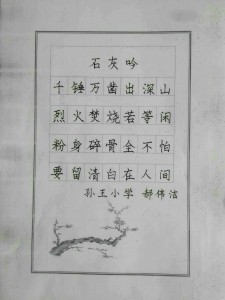 石灰吟
千锤万凿出深山
烈火焚烧若等闲
粉身碎骨全不怕
要留清白在人间
孙王小学 郝伟洁